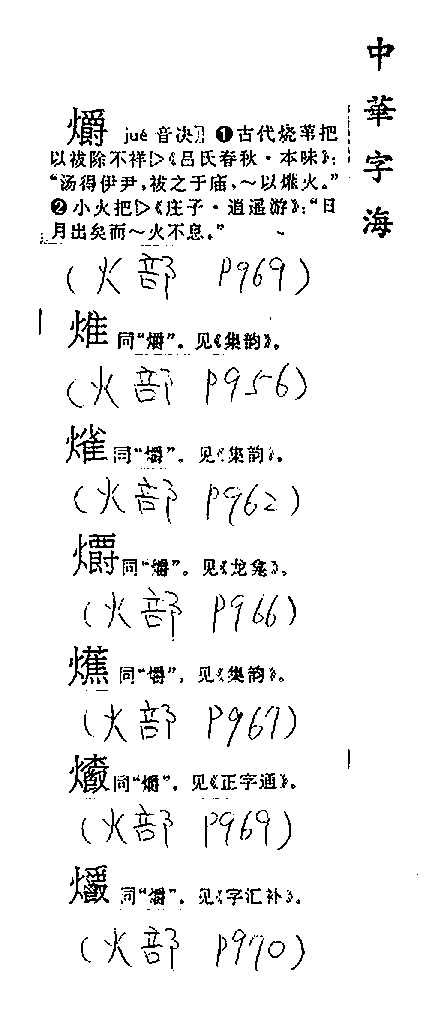 中華字海
爝 jué 音决 ❶古代烧苇把
以祓除不祥▷《吕氏春秋·本味》：
“汤得伊尹，祓之于庙，～以爟火。”
❷小火把▷《庄子·逍遥游》：“日
月出矣而～火不息。”
(火部 P969)
㷅 同“爝”。见《集韵》。
(火部 P956)
熣 同“爝”。见《集韵》。
(火部 P962)
同“爝”。见《龙龛》。
(火部 P966)
同“爝”。见《集韵》。
(火部 P967)
同“爝”。见《正字通》。
(火部 P969)
同“爝”。见《字汇补》。
(火部 P970)